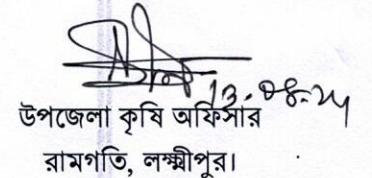 13.08.24
উপজেলা কৃষি অফিসার
রামগতি, লক্ষ্মীপুর।